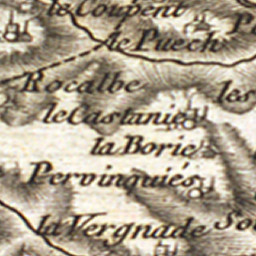 le Coupent
le Puech
Rocalbe
les
le Castanie
la Borie
Pervinquiés
la Vergnade